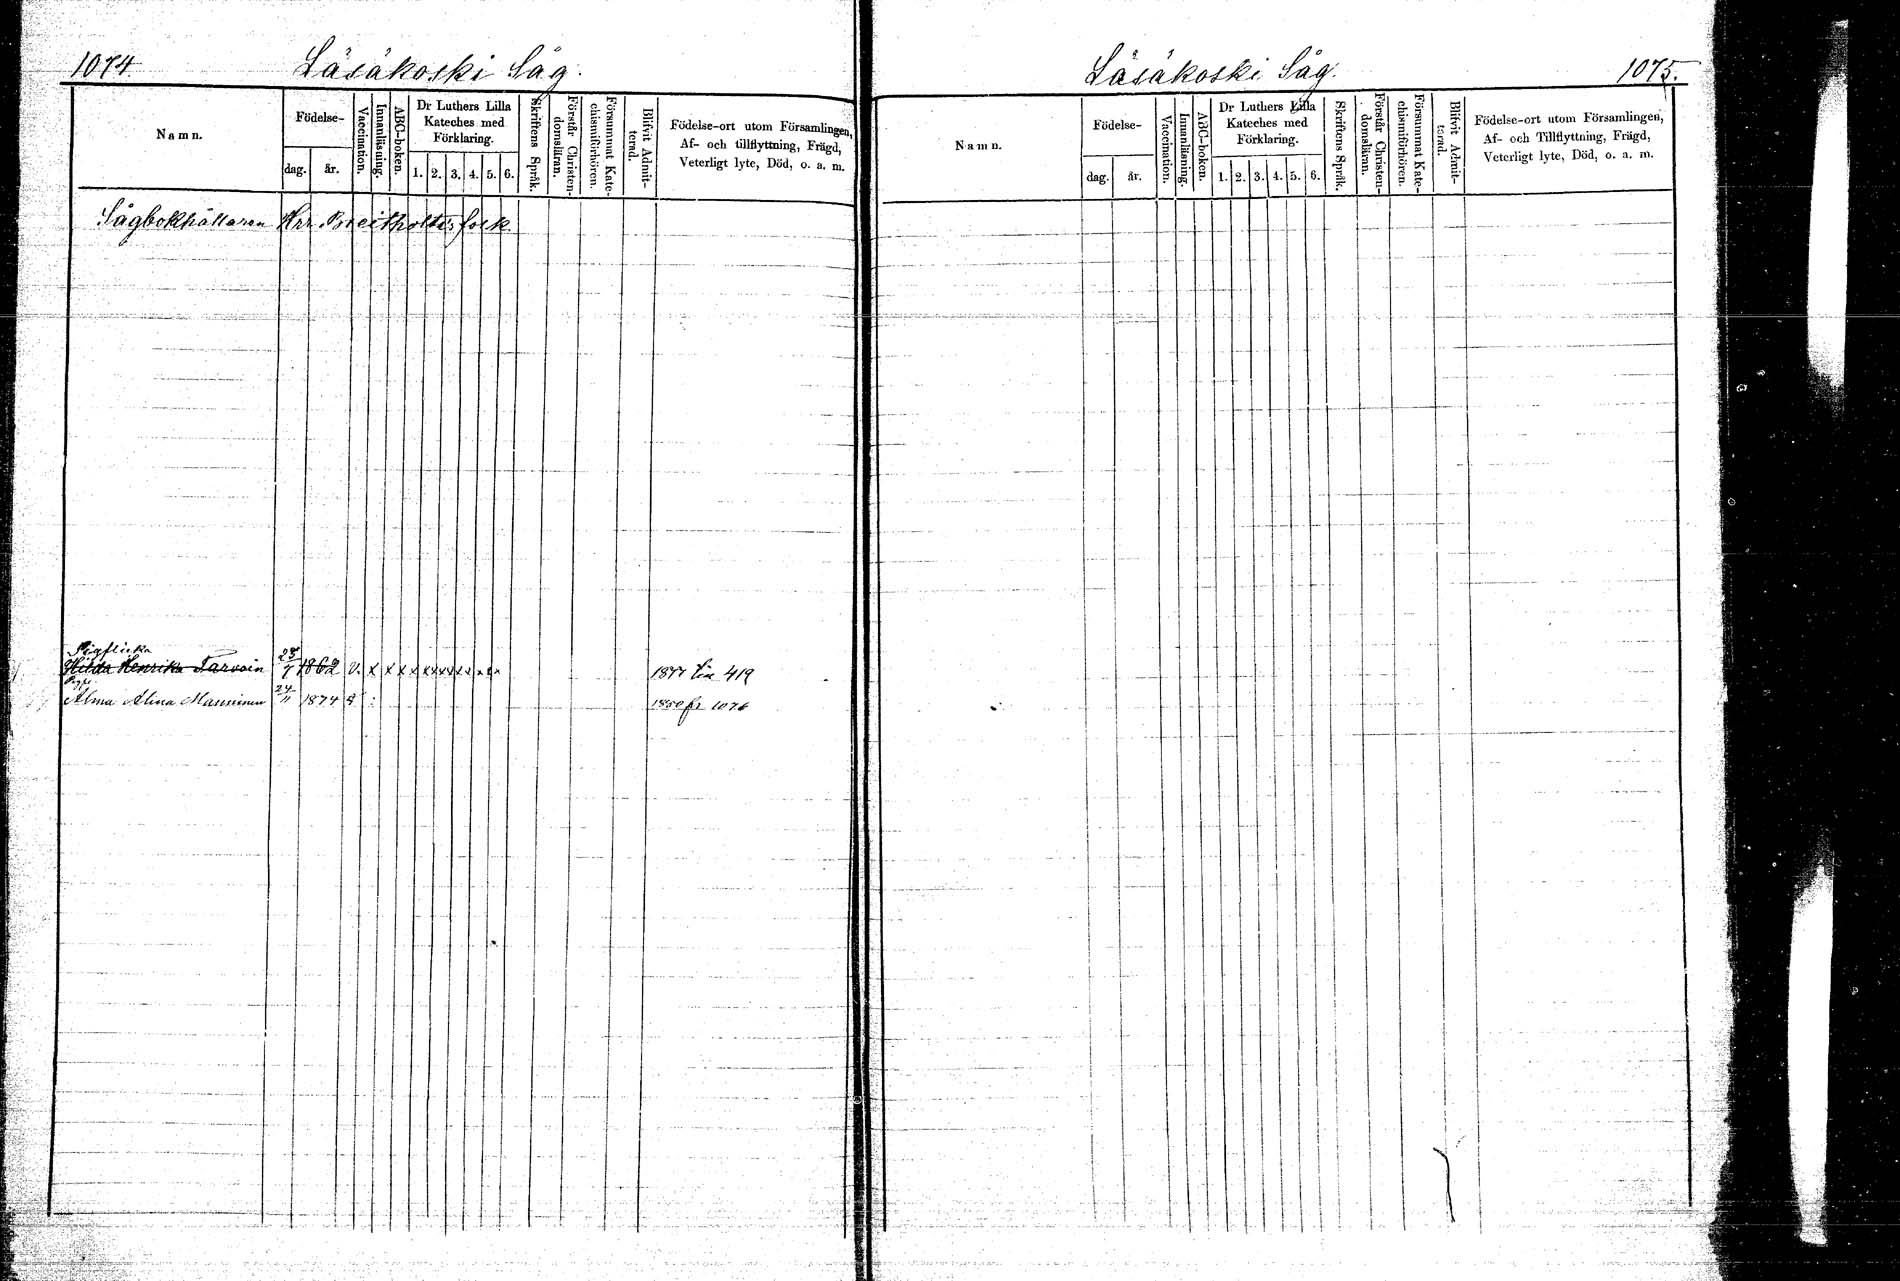 1074. Läsäkoski Såg.
Namn.
Födelse-
dag. år.
Vaccination.
Innanläsning.
ABC-boken.
Dr Luthers Lilla
Kateches med
Förklaring.
1. 2. 3. 4. 5. 6.
Skriftens Språk.
Förstår Christen-
domsläran.
Försummat Kate-
chismiförhören.
Blifvit Admit-
terad.
Födelse-ort utom Församlingen,
Af- och tillflyttning, Frägd,
Veterligt lyte, Död, o. a. m.
Sågbokhållaren Hrr. Breitholtz's folk.
Pigflicka
Hilda Henrika Tarvain 1862 v. x x x x x x x x x x x 1877 419
Alma Alina Manninen 24/11 1874 1880 fr 1076
Läsäkoski Såg. 1075.
Namn.
Födelse-
dag. år.
Vaccination.
Innanläsning.
ABC-boken.
Dr Luthers Lilla
Kateches med
Förklaring.
1. 2. 3. 4. 5. 6.
Skriftens Språk.
Förstår Christen-
domslärnn.
Försummat Kate-
chismiförhören.
Blifvit Admit-
terad.
Födelse-ort utom Församlingen,
Af- och Tillflyttning, Frägd,
Veterligt lyte, Död, o. a. m.